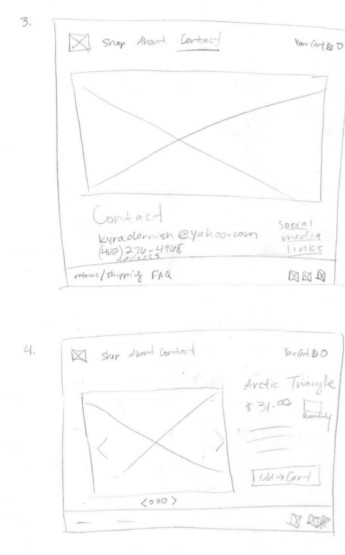 3.
Shop About Contact
Your Cart 0
Contact
kyradernish@yahoo.com
address
Social
media
links
returns/shipping FAQ
4.
Shop About Contact
Your Cart 0
Arctic Triangle
$31.00
Quantity
Add to Cart
<000>